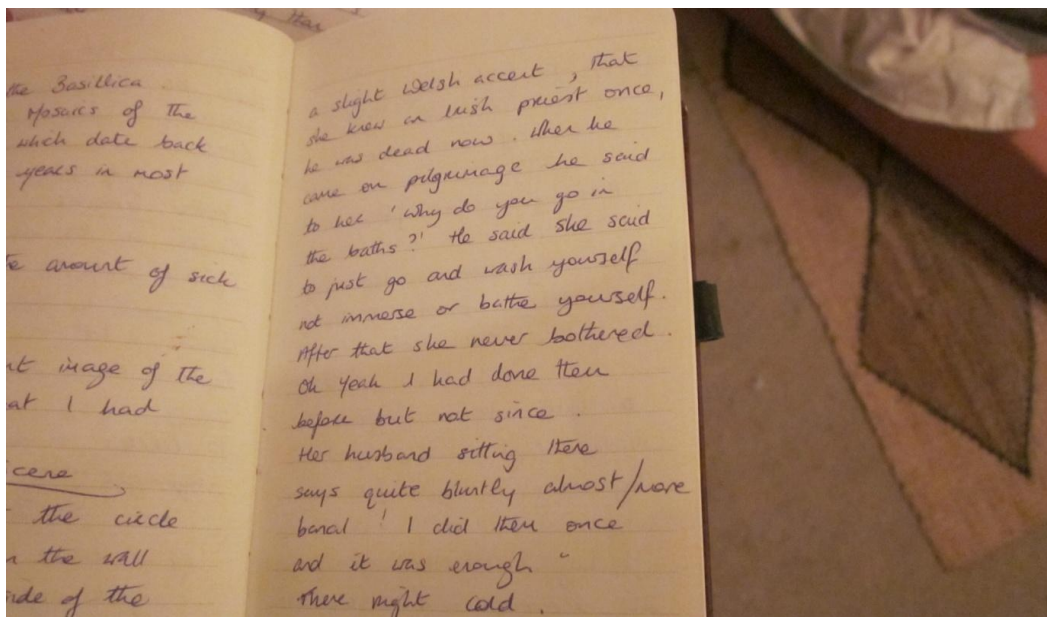 the Basillica
Mosaics of the
which date back
years in most
amount of sick
image of the
at I had
the circle
the wall
of the
a slight Welsh accent, that
she knew an Irish priest once,
he was dead now. When he
came on pilgrimage he said
to her 'why do you go in
the baths?' He said she said
to just go and wash yourself
not immerse or bathe yourself.
After that she never bothered.
Oh yeah I had done them
before but not since.
Her husband sitting there
says quite bluntly almost/more
banal ' I did them once
and it was enough "
There might cold.